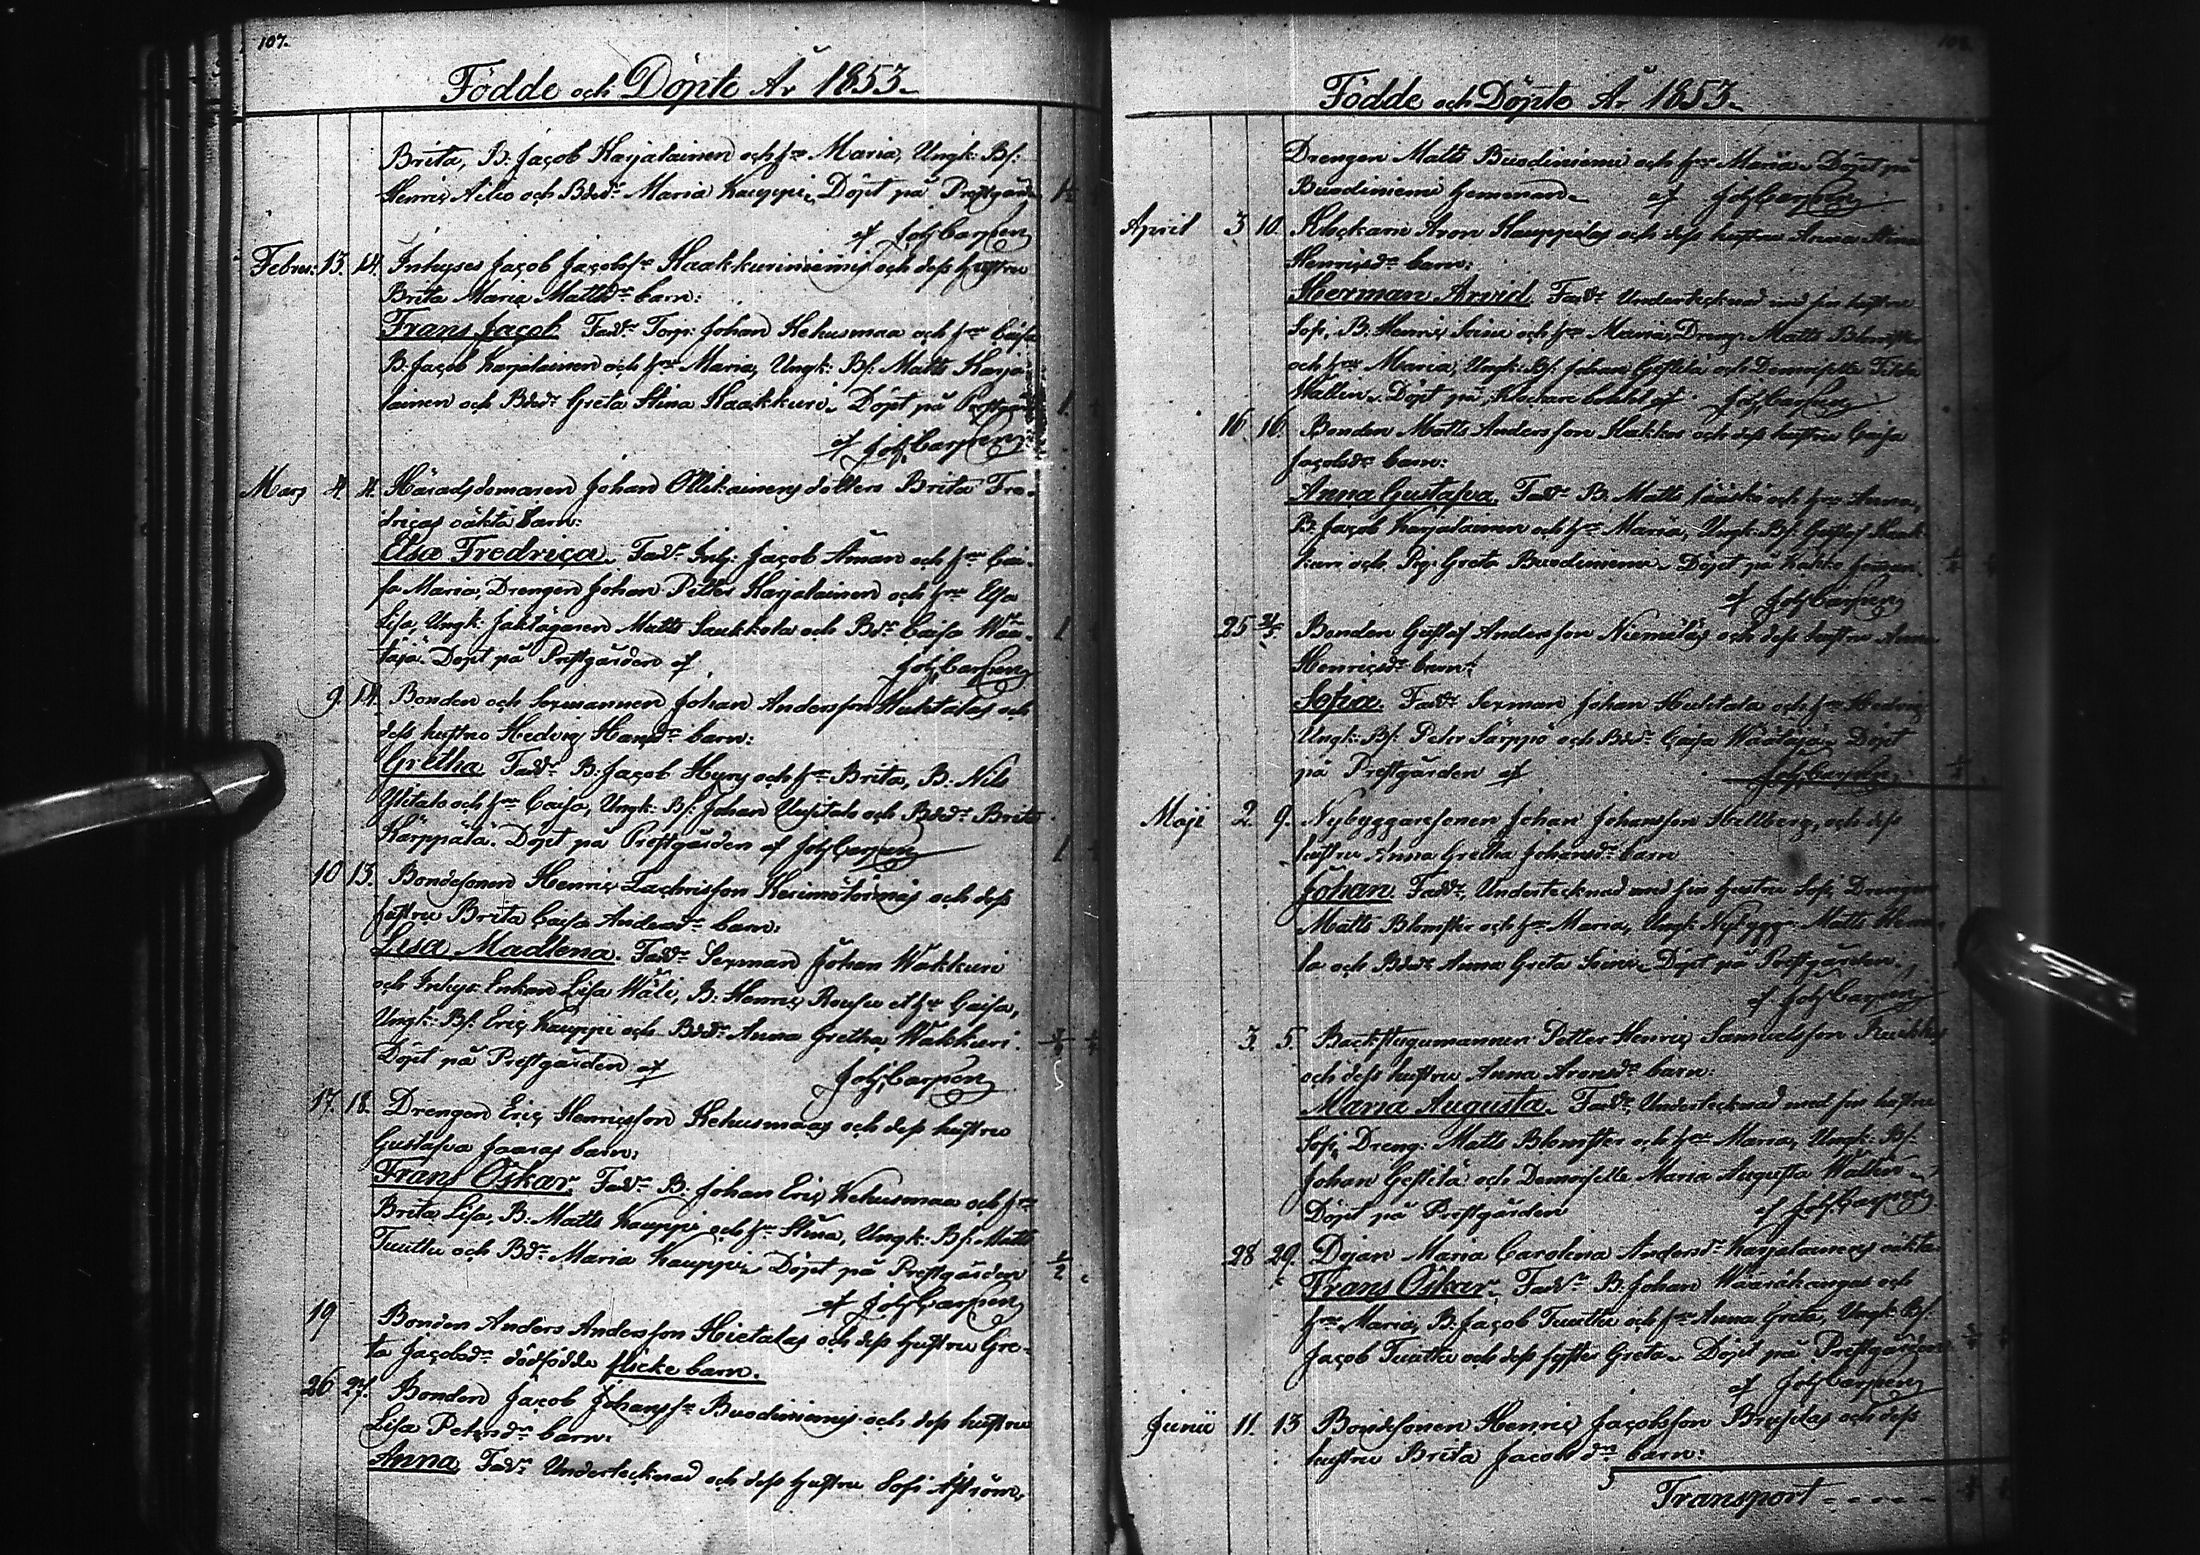 107.
Födde och Döpte År 1853.
Brita, B. Jacob Karjalainen och h:u Maria, Ungk: Bs:
Henric Ailio och Bdr Maria Kauppi. Döpt på Prestgården
af Joh: Carpen
Febru: 13. 14. Inhyses Jacob Jacobs: Kaakkuriniemis och dess hustru
Brita Maria Mattsdr barn:
Frans Jacob. Fadd: Torp: Johan Kehusmaa och h:u Caisa
B: Jacob Karjalainen och h:u Maria, Ungk: Bs: Matts Karja-
lainen och Bdr Greta Stina Kaakkuri. Döpt på
af Joh: Carpen
Mars 4. 4. Häradsdomaren Johan Ollikainens dotters Brita Fre-
dricas oäkta barn:
Elsa Fredrica. Fadd: Inh: Jacob Åman och h:u Cai-
sa Maria, Drengen Johan Petter Karjalainen och h:u Elsa
Lisa, Ungk: Matts Saukkola och Bdr Caisa Wää-
täjä. Döpt på Prestgården af Joh: Carpen
9. 14. Bonden och Sexmannen Johan Andersson Huhtalas och
dess hustru Hedvig Hansdr barn:
Gretha. Fadd: B: Jacob Hurus och h:u Brita, B: Nils
Ylitalo och h:u Caisa, Ungk: Bs: Johan Uusitalo och Bdr Brita
Kärppälä. Döpt på Prestgården af Joh: Carpen
10 13. Bondesonen Henric Zachrisson och dess
hustru Brita Caisa Andersdr barn:
Lisa Madlena. Fadd: Sexman Johan Wakkuri
och Inhys: Enkan Lisa Wäli, B: Henric Rousu och h:u Caisa,
Ungk: Bs: Eric Kauppi och Bdr Anna Gretha Wakkuri.
Döpt på Prestgården af Joh: Carpen
17. 18. Drengen Eric Henricsson Kehusmaas och dess hustru
Gustafva Jaaras barn:
Frans Oskar. Fadd: B. Johan Eric Kehusmaa och h:u
Brita Lisa, B: Matts Kauppi och h:u Stina, Ungk: Bs: Matts
Tuuttu och Bdr Maria Kauppi. Döpt på Prestgården
af Joh: Carpen
19 Bonden Anders Andersson Hietalas och dess hustru Gre-
ta Jacobsdr dödfödda flicke barn.
26 27. Bonden Jacob Johanss: Buodiniemis och dess hustru
Lisa Petersdr barn:
Anna. Fadd: Undertecknad och dess hustru Sofi Aström,
108.
Födde och Döpte År 1853.
Drengen Matts Buodiniemi och h:u Maria. Döpt på
Buodiniemi hemman af Joh: Carpen
April 3 10. Klockaren Aron Kauppilas och dess hustru Anna Stina
Henricsdr barn:
Herman Arvid. Fadd: Undertecknad med sin hustru
Sofi, B. Henric Soini och h:u Maria, Dreng: Matts Blomster
och h:u Maria, Ungk: Bs: Johan Gestilä och Demoiselle
Wallin. Döpt på Klockare bohlet af Joh: Carpen
16. 16. Bonden Matts Andersson Kakkos och dess hustru Caisa
Jacobsdr barn:
Anna Gustafva. Fadd: B. Matts Jääskö och h:u Anna,
B: Jacob Karjalainen och h:u Maria, Ungk: Bs: Gustaf Kaak-
kuri och Pig: Greta Buodiniemi. Döpt på Kakko hemman.
af Joh: Carpen
25 Bonden Gustaf Andersson Niemeläs och dess hustru Anna
Henricsdr barn:
Sofia. Fadd: Sexman Johan Huhtala och h:u Hedvig
Ungk: Bs: Peter Särppö och Bdr Caisa Wäätäjä. Döpt
på Prestgården af Joh: Carpen
Maji 2. 9. Nybyggaresonen Johan Johansson Hallberg, och dess
hustru Anna Gretha Johansdr barn
Johan. Fadd: Undertecknad med sin hustru Sofi, Drengen
Matts Blomster och h:u Maria, Ungk: Nybygg: Matts
la och Bdr Anna Greta Soini. Döpt på Prestgården.
af Joh: Carpen
3. 5. Backstugumannen Petter Henric Samuelsson Ruikkas
och dess hustru Anna Aronsdr barn:
Maria Augusta. Fadd: Undertecknad med sin hustru
Sofi, Dreng: Matts Blomster och h:u Maria, Ungk: Bs:
Johan Gestilä och Demoiselle Maria Augusta Wallin.
Döpt på Prestgården af Joh: Carpen
28 29. Dejan Maria Carolina Andersdr Karjalainens oäkta
Frans Oskar. Fadd: B: Johan Wäärikangas och
h:u Maria, B. Jacob Tuuttu och h:u Anna Greta, Ungk: Bs:
Jacob Tuuttu och dess syster Greta. Döpt på Prestgården
af Joh: Carpen
Junii 11. 13 Bondesonen Henric Jacobsson och dess
hustru Brita Jacobsdr barn:
Transport